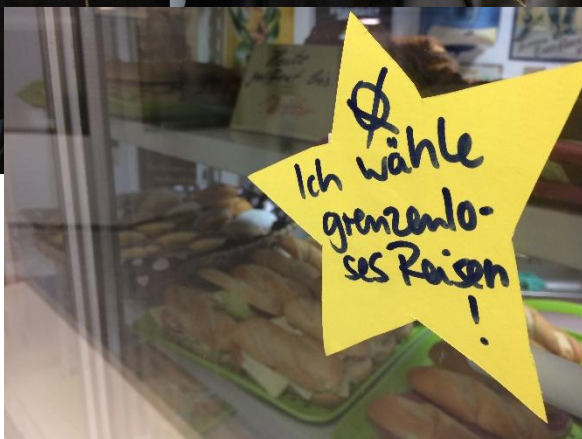 Ø
Ich wähle
grenzenlo-
ses Reisen
!